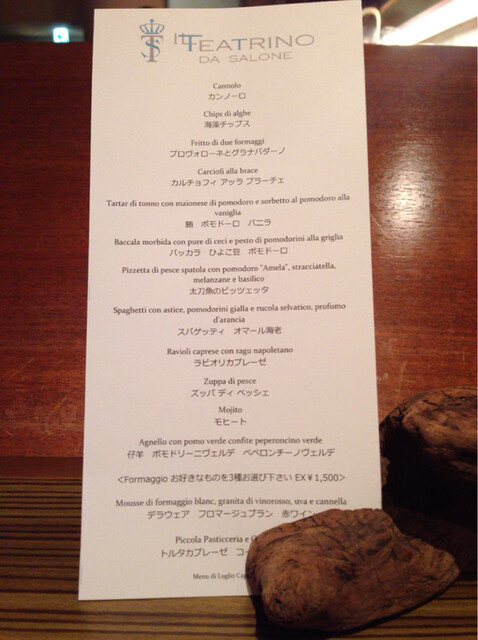 IL TEATRINO
DA SALONE
Cannolo
カンノーロ
Chips di alghe
海藻チップス
Fritto di due formaggi
プロヴォローネとグラナパダーノ
Carciofi alla brace
カルチョフィ アッラ ブラーチェ
Tartar di tonno con maionese di pomodoro e sorbetto al pomodoro alla
vaniglia
鮪 ポモドーロ バニラ
Baccala morbida con pure di ceci e pesto di pomodorini alla griglia
バッカラ ひよこ豆 ポモドーロ
Pizzetta di pesce spatola con pomodoro "Amela", stracciatella,
melanzane e basilico
太刀魚のピッツェッタ
Spaghetti con astice, pomodorini gialla e rucola selvatico, profumo
d'arancia
スパゲッティ オマール海老
Ravioli caprese con ragu napoletano
ラビオリカプレーゼ
Zuppa di pesce
ズッパ ディ ペッシェ
Mojito
モヒート
Agnello con pomo verde confite peperoncino verde
仔羊 ポモドリーニヴェルデ ペペロンチーノヴェルデ
<Formaggio お好きなものを3種お選び下さい EX¥1,500>
Mousse di formaggio blanc, granita di vinorosso, uva e cannella
デラウェア フロマージュブラン 赤ワイン
Piccola Pasticceria e
トルタカプレーゼ
Menu di Luglio